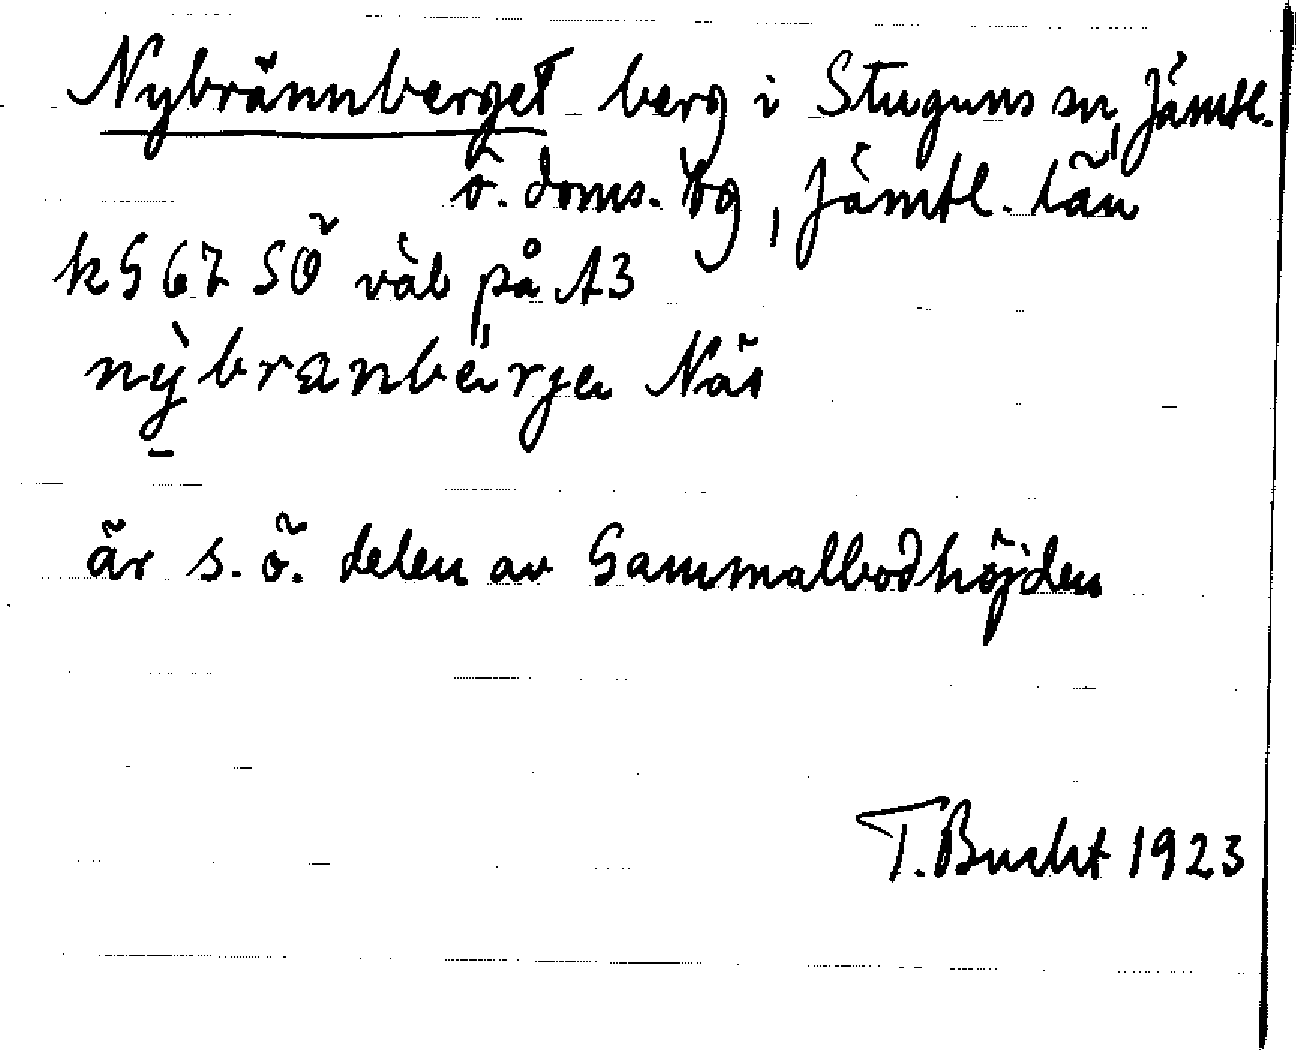 Nybrännberget berg i Stuguns sn, Jämtl.
ö. doms. tbg, Jämtl. län
k G 67 SÖ väb på A3
nỳbranbärjɛ Näs
är s.ö. delen av Gammalbodhöjden
T. Bucht 1923